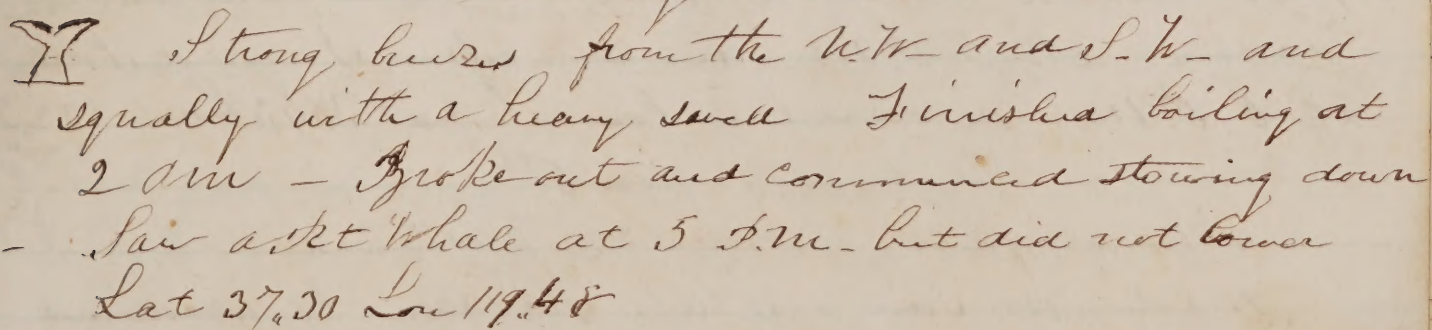 Strong breezes from the N.W- and S-W- and
squally with a heavy swell Finished boiling at
2 am - Broke out and commenced stowing down
- Saw a Rt Whale at 5 P.M- but did not lower
Lat 37,,30 Lon 119,,48